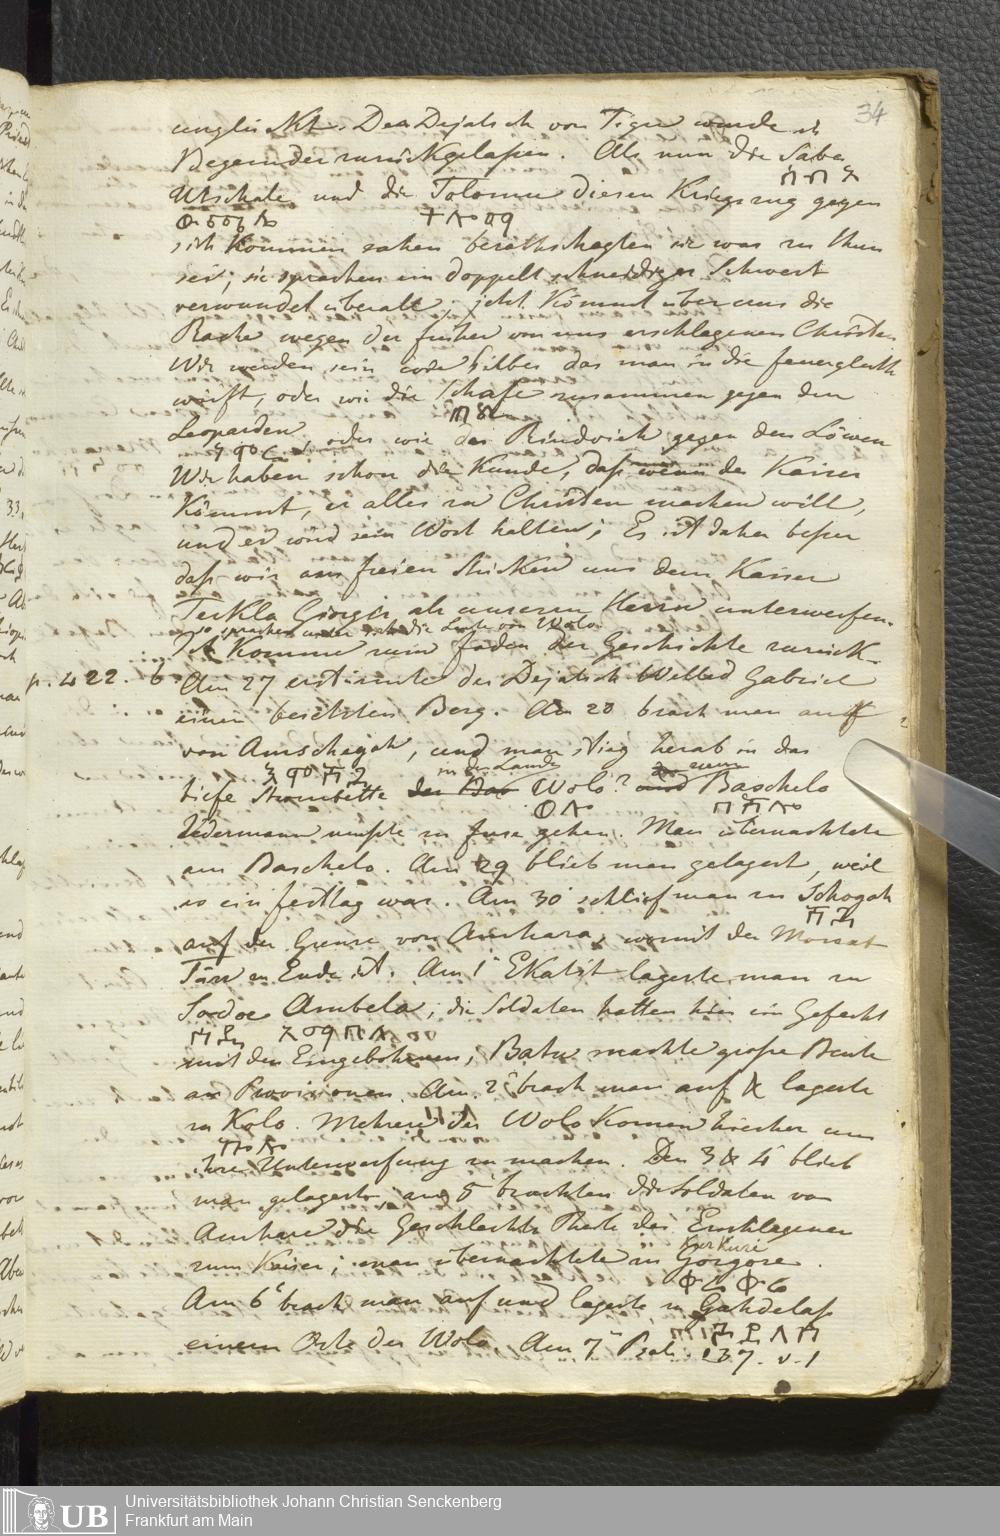 34
unglückt. Der Dejatsch von Tigre wurde in
Begemder zurückgelaßen. Als nun die Saba
ሰበ
Utschale und die Tolome diesen Kriegszug gegen
ውጫሌ ቶሎማ
sich kommen sahen berathschagten sie was zu thun
sei; sie sprachen ein doppelt schneidiger Schwert
verwundet überall; jetzt kömmt über uns die
Rache wegen der früher von uns erschlagenen Christen
Wir werden sein wie Silber das man in die feuergluth
wirft, oder wie die Schafe zusammen gegen den
Leoparden, oder wie das Rindvieh gegen den Löwen
ነምር
Wir haben schon die Kunde, daß wenn der Kaiser
kömmt, er alles zu Christen machen will,
und er wird sein Wort halten; Es ist daher beßer
daß wir aus freien Stücken uns dem Kaiser
Teckla Giorgis als unserem Herrn unterwerfen.
so sprachen unter sich die Leute von Wolo
Ich komme zum faden der Geschichte zurück.
p. 422. b
Am 27 erstürmte der Dejatsch Welled Gabriel
einen besetzten Berg. Am 28 brach man auf
von Amschagah, und man stieg herab in das
in der Lande zum
tiefe Strombette der Wolo? und Baschelo
ወሎ በሸሎ
Jedermann mußte zu fuse gehen. Man übernachtete
am Baschelo. Am 29 blieb man gelagert, weil
es ein festtag war. Am 30 schlief man zu Schogah
auf der Grenze von Amhara, womit der Monat
Tärr zu Ende ist. Am 1 Ekatit lagerte man zu
Ambela; die Soldaten hatten hier ein Gefecht
mit den Eingebohrnen; Batu machte große Beute
an Provisionen. Am 2 brach man auf & lagerte
zu Kolo. Mehrere der Wolo kamen hierher um
ihre Unterwerfung zu machen. Den 3 & 4 blieb
man gelagert, am 5 brachten die Soldaten von
Amhara die Geschlechts Theile der Erschlagenen
Kurkure
zum Kaiser; man übernachtete zu Gorgore.
ቁሬቁሬ
Am 6 brach man auf und lagerte zu Gahdelaß
einem Orte der Wolo. Am 7 Psal. 137. v. 1
Universitätsbibliothek Johann Christian Senckenberg
Frankfurt am Main
UB